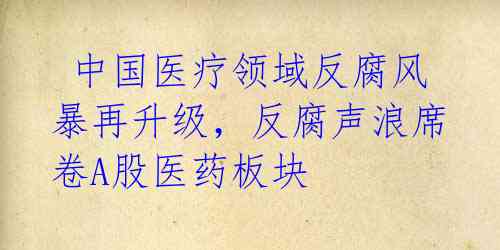 中国医疗领域反腐风
暴再升级，反腐声浪席
卷A股医药板块